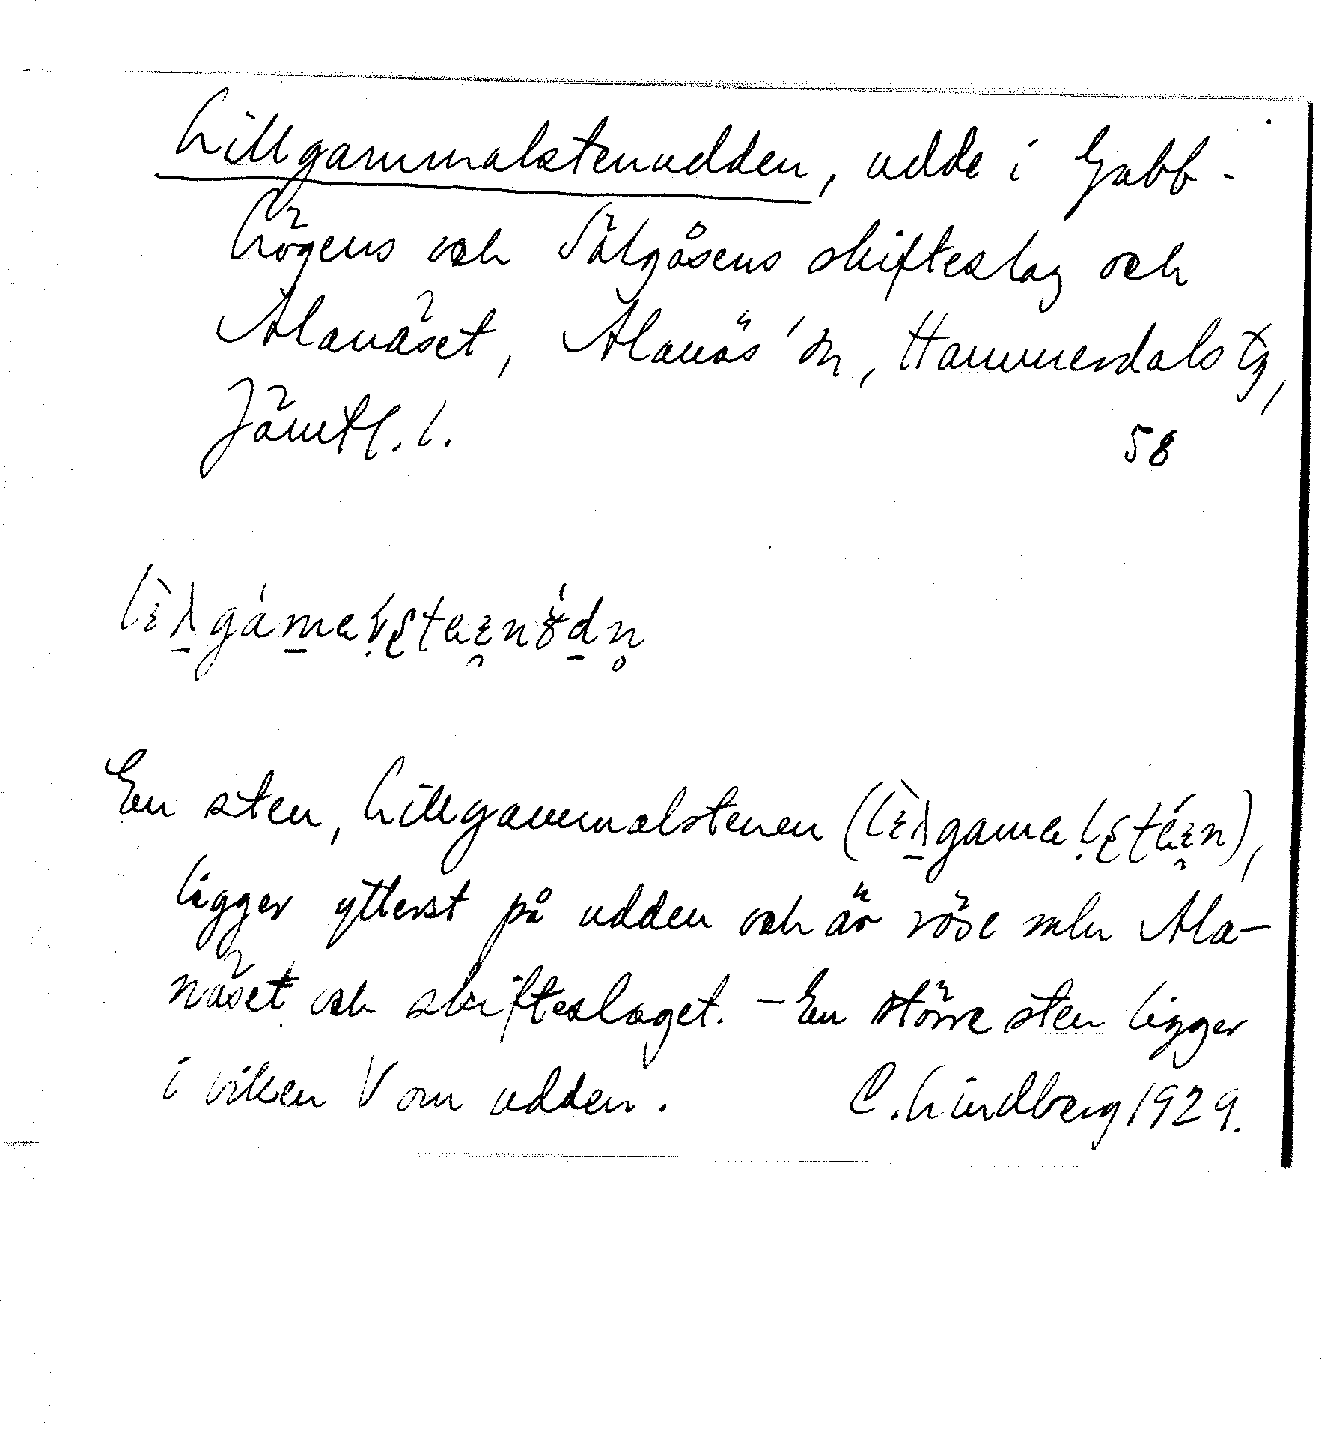 Lillgammalstenudden, udde i Gubb-
högens och Sälgåsens skifteslag och
Alanäset, Alanäs sn, Hammerdals tg,
Jämtl. l.
58
En sten, Lillgammalstenen
ligger ytterst på udden och är röse mln Ala-
näset och skifteslaget. – En större sten ligger
i viken V om udden. C. Lindberg 1929.